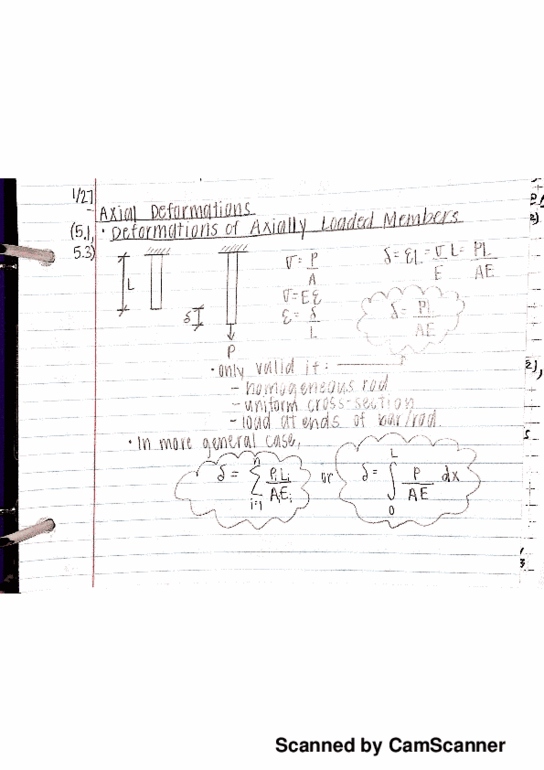 1/27
Axial Deformations
(5.1, 5.3) • Deformations of Axially Loaded Members
L
δ
P
σ = P/A
σ = Eε
ε = δ/L
δ = εL = σ/E L = PL/AE
δ = PL/AE
• only valid if:
- homogeneous rod
- uniform cross-section
- load at ends of bar/rod
• In more general case,
δ = n Σ i=1 PiLi/AEi or δ = ∫ L 0 P/AE dx
Scanned by CamScanner